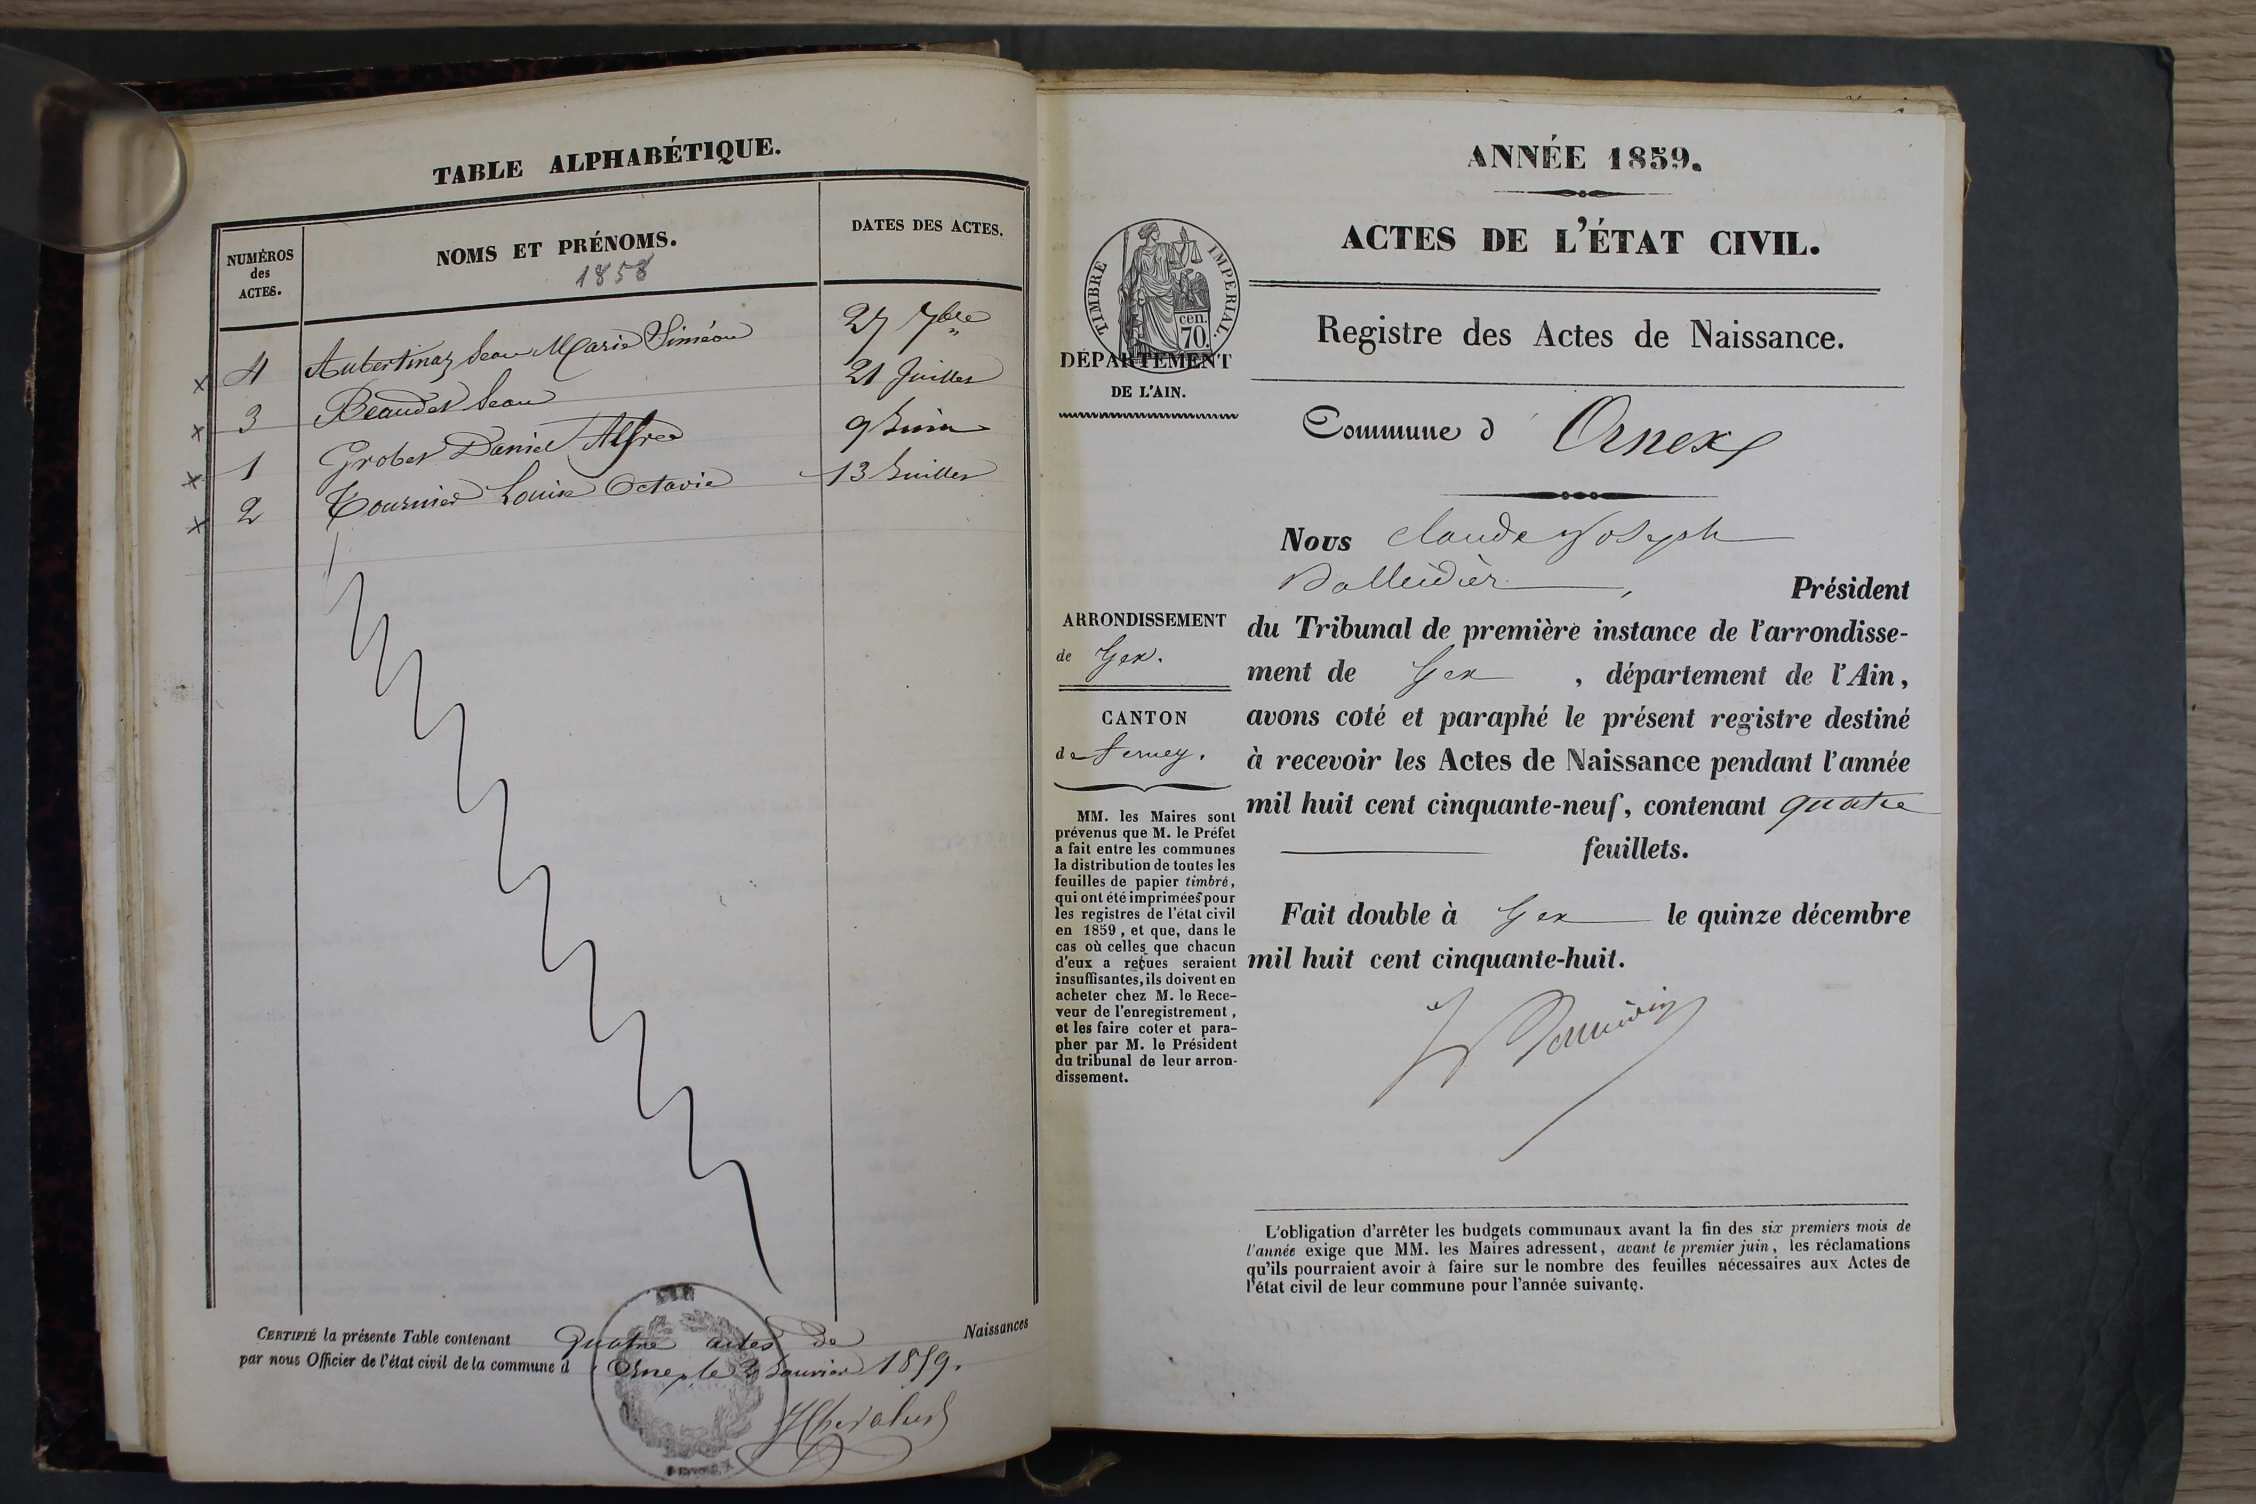 TABLE ALPHABÉTIQUE.
NUMÉROS des ACTES.
NOMS ET PRÉNOMS.
1858
DATES DES ACTES.
4 Aubertinaz Jean Marie Siméon 27 7bre
3 Beaudet Jean 21 Juillet
1 Grobet Daniel Alfred 9 Juin
2 Tournier Louise Octavie 13 Juillet
CERTIFIÉ la présente Table contenant quatre actes de Naissances
par nous Officier de l'état civil de la commune d' Ornex le 3 Janvier 1859.
ANNÉE 1859.
ACTES DE L'ÉTAT CIVIL.
TIMBRE IMPERIAL.
cen.
70.
DÉPARTEMENT
DE L'AIN.
Registre des Actes de Naissance.
Commune d' Ornex
Nous Claude Joseph
Président
du Tribunal de première instance de l'arrondisse-
ment de Gex, département de l'Ain,
avons coté et paraphé le présent registre destiné
à recevoir les Actes de Naissance pendant l'année
mil huit cent cinquante-neuf, contenant quatre
feuillets.
Fait double à Gex le quinze décembre
mil huit cent cinquante-huit.
ARRONDISSEMENT
de Gex.
CANTON
de Ferney.
MM. les Maires sont
prévenus que M. le Préfet
a fait entre les communes
la distribution de toutes les
feuilles de papier timbré,
qui ont été imprimées pour
les registres de l'état civil
en 1859, et que, dans le
cas où celles que chacun
d'eux a reçues seraient
insuffisantes, ils doivent en
acheter chez M. le Rece-
veur de l'enregistrement,
et les faire coter et para-
pher par M. le Président
du tribunal de leur arron-
dissement.
L'obligation d'arrêter les budgets communaux avant la fin des six premiers mois de
l'année exige que MM. les Maires adressent, avant le premier juin, les réclamations
qu'ils pourraient avoir à faire sur le nombre des feuilles nécessaires aux Actes de
l'état civil de leur commune pour l'année suivante.